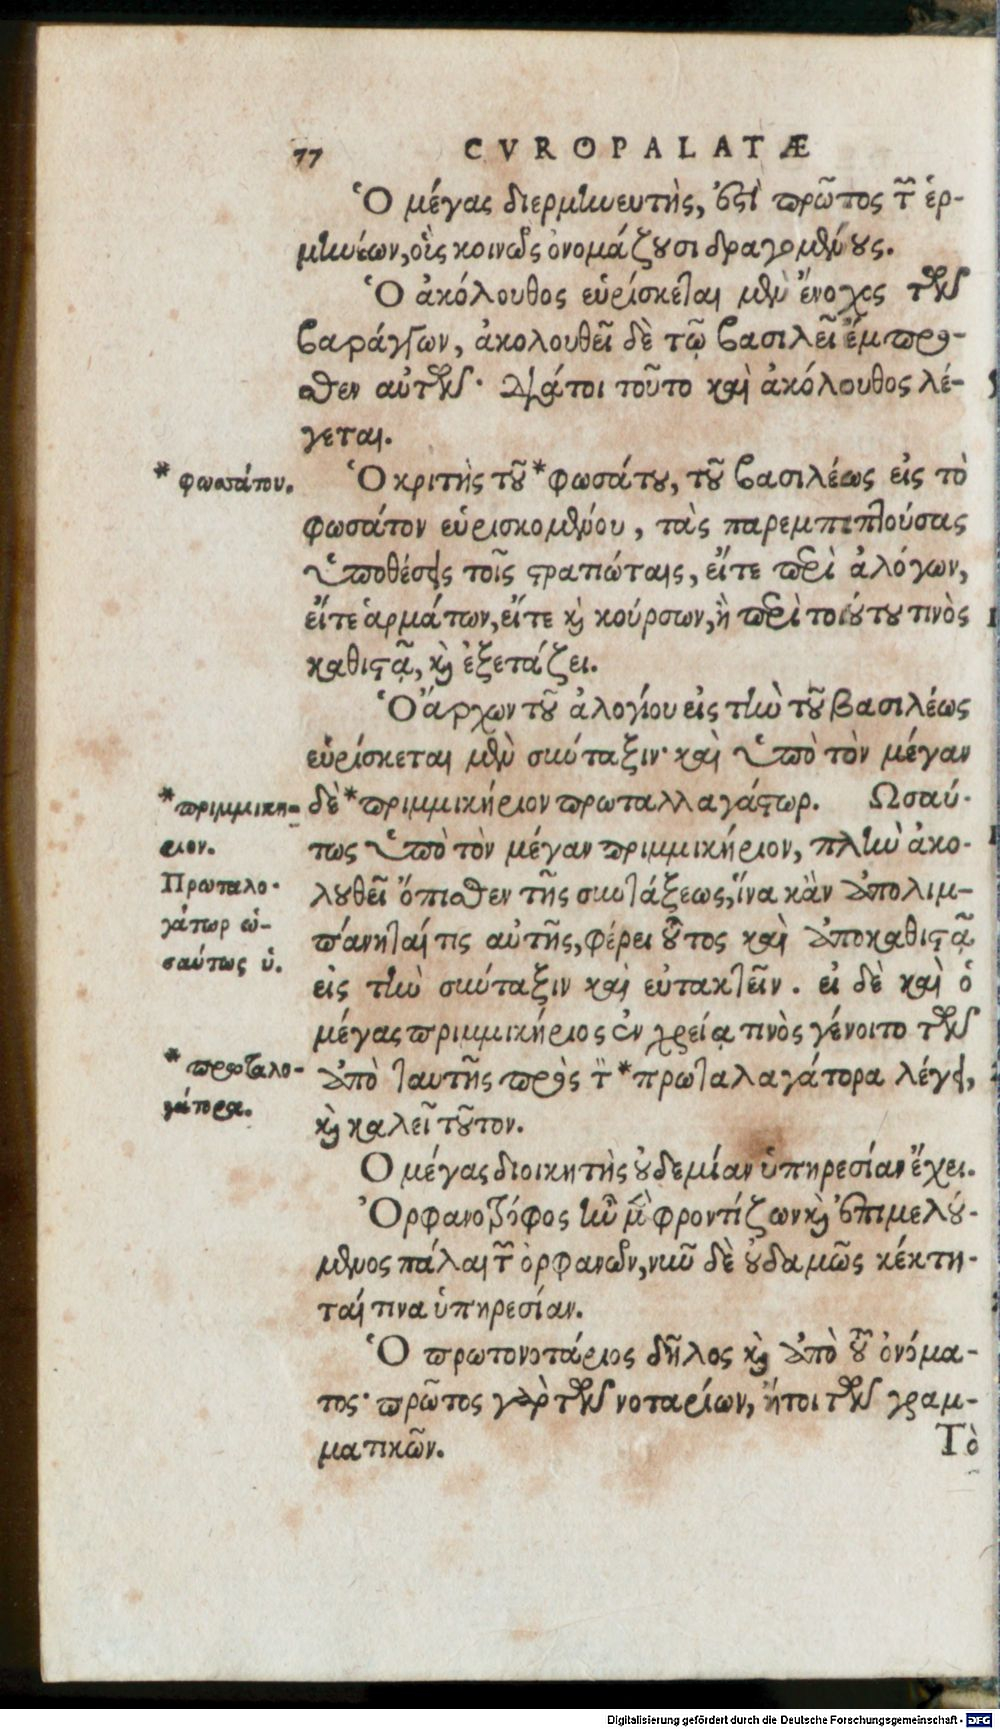 77 CVROPALATÆ
Ὁ μέγας διερμηνευτὴς, ἐστὶ πρῶτος τῶν ἑρ-
μηνέων, οἷς κοινῶς ὀνομάζουσι δραγομένους.
Ὁ ἀκόλουθος εὑρίσκεται μὲν ἔνοχος τῶν
βαράγγων, ἀκολουθεῖ δὲ τῷ βασιλεῖ ἔμπρο-
σθεν αὐτῶν· διάτοι τοῦτο καὶ ἀκόλουθος λέ-
γεται.
* φωσσάτου.
Ὁ κριτὴς τοῦ * φωσάτου, τοῦ βασιλέως εἰς τὸ
φωσάτον εὑρισκομένου, τὰς παρεμπιπτούσας
ὑποθέσεις τοῖς στρατιώταις, εἴτε περὶ ἀλόγων,
εἴτε ἁρμάτων, εἴτε καὶ κούρσων, ἢ περὶ τοιούτου τινὸς
καθιστᾷ, καὶ ἐξετάζει.
Ὁ ἄρχων τοῦ ἀλογίου εἰς τὴν τοῦ βασιλέως
εὑρίσκεται μὲν σύνταξιν· καὶ ὑπὸ τὸν μέγαν
* πριμμικη-
ριον.
δὲ * πριμμικήριον πρωταλλαγάτωρ. Ωσαύ-
τως ὑπὸ τὸν μέγαν πριμμικήριον, πλὴν ἀκο-
Πρωταλο-
γάτωρ ὡ-
σαύτως ὑ.
λουθεῖ ὄπισθεν τῆς συντάξεως, ἵνα κἂν ἀπολιμ-
πάνηταί τις αὐτῆς, φέρει οὗτος καὶ ἀποκαθιστᾷ
εἰς τὴν σύνταξιν καὶ εὐτακτεῖν. εἰ δὲ καὶ ὁ
μέγας πριμμικήριος ἐν χρείᾳ τινὸς γένοιτο τῶν
* πρωταλο-
γάτορα.
ἀπὸ ταυτῆς πρὸς τὸν * πρωταλαγάτορα λέγει,
καὶ καλεῖ τοῦτον.
Ο μέγας διοικητὴς οὐδεμίαν ὑπηρεσίαν ἔχει.
Ὀρφανοτρόφος ἦν μὲν φροντίζων καὶ ἐπιμελού-
μενος πάλαι τῶν ὀρφανῶν, νῦν δὲ οὐδαμῶς κέκτη-
ταί τινα ὑπηρεσίαν.
Ὁ πρωτονοτάριος δῆλος καὶ ἀπὸ τοῦ ὀνόμα-
τος· πρῶτος γὰρ τῶν νοταρίων, ἤτοι τῶν γραμ-
ματικῶν.
Τὸ
Digitalisierung gefördert durch die Deutsche Forschungsgemeinschaft - DFG